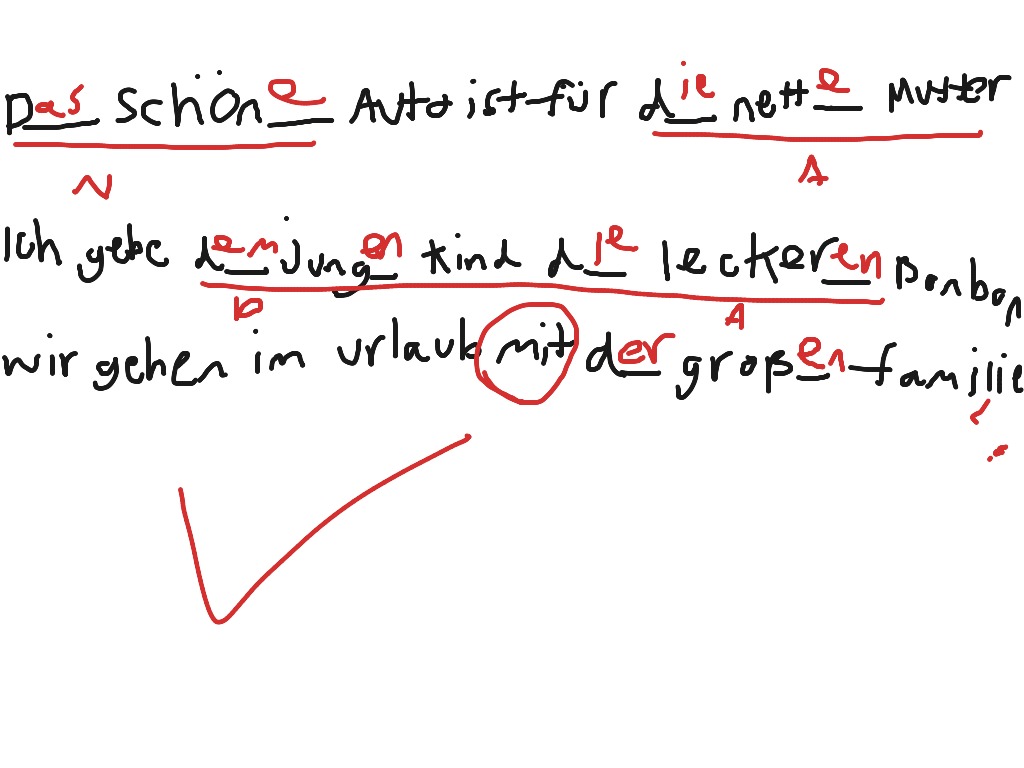 Das schöne Auto ist für die nette Mutter
N A
Ich gebe dem jungen Kind die leckeren Bonbon
D A
wir gehen im urlaub mit der großen familie